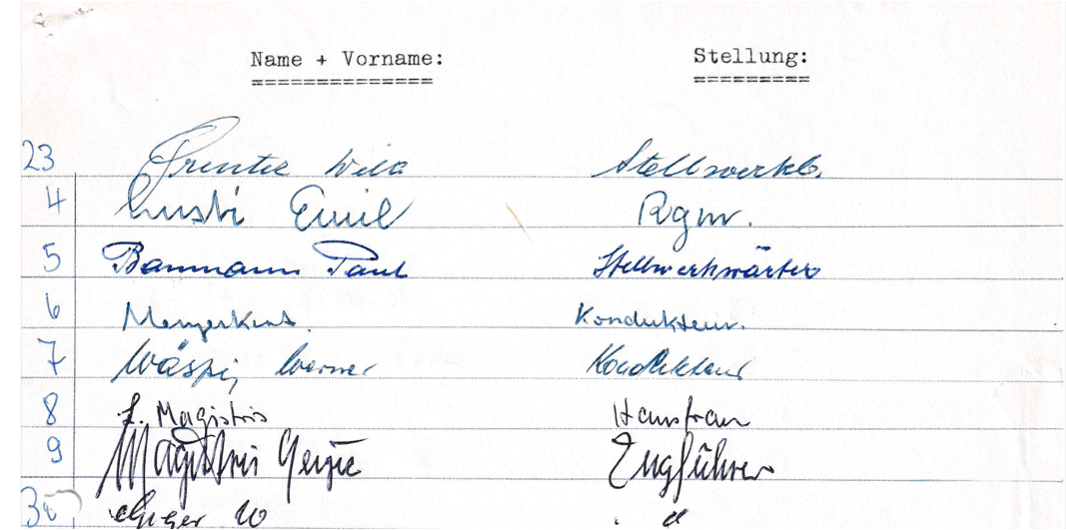 Name + Vorname: Stellung:
23 Willi Stellwerkb.
4 Lusti Emil Rgm.
5 Baumann Paul Stellwerkwärter
6 Kondukteur.
7 Wäspi, Werner Kondukteur
8 L. Magistris Hausfrau
9 Magistris Zugführer
30